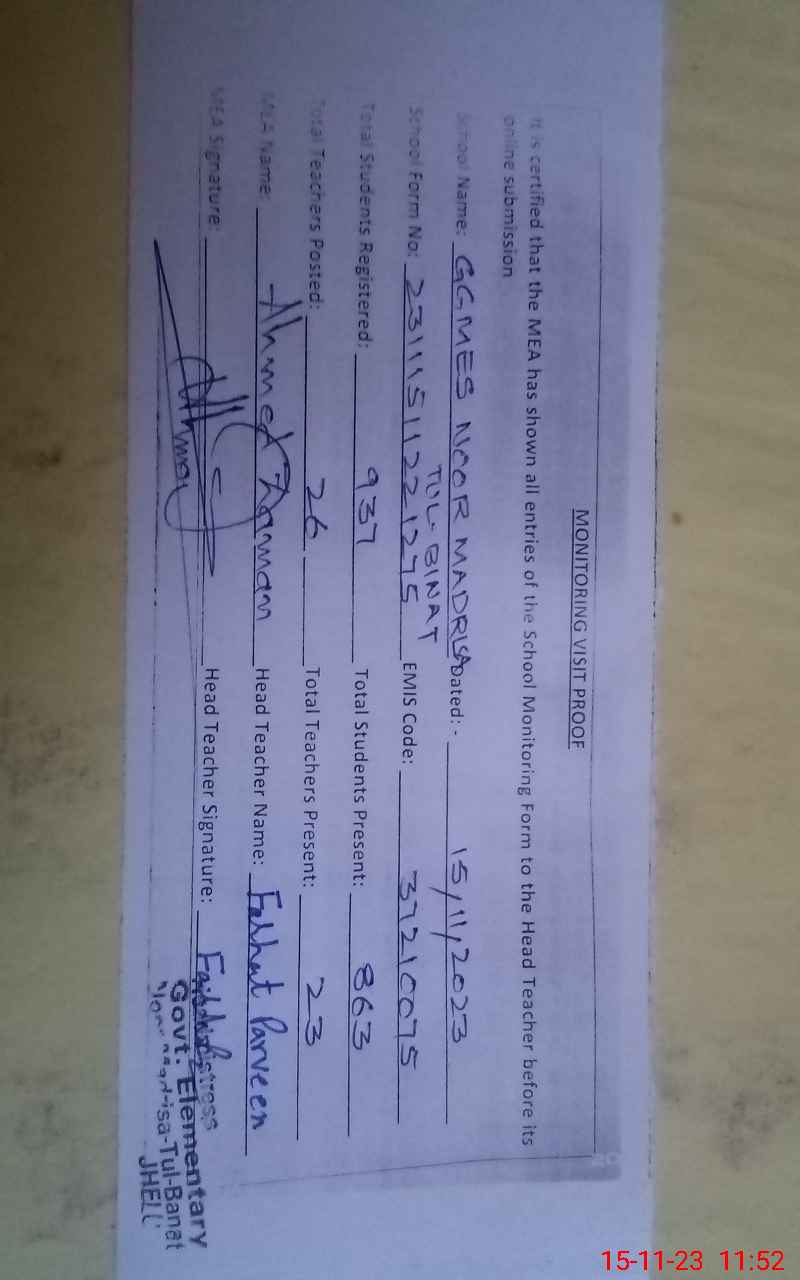 MONITORING VISIT PROOF
It is certified that the MEA has shown all entries of the School Monitoring Form to the Head Teacher before its
online submission
School Name: GGMES NOOR MADRISA Dated: - 15/11/2023
TUL-BINAT
School Form No: 23111511221275 EMIS Code: 37210075
Total Students Registered: 937 Total Students Present: 863
Total Teachers Posted: 26 Total Teachers Present: 23
MEA Name: Ahmed Head Teacher Name: Farhat Parveen
MEA Signature: Head Teacher Signature:
Govt: Elementary
-Tul-Banat
15-11-23 11:52